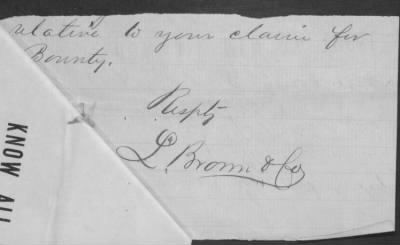 relative to your claim for
Bounty.
Respty
L. Brown & Co
KNOW ALL